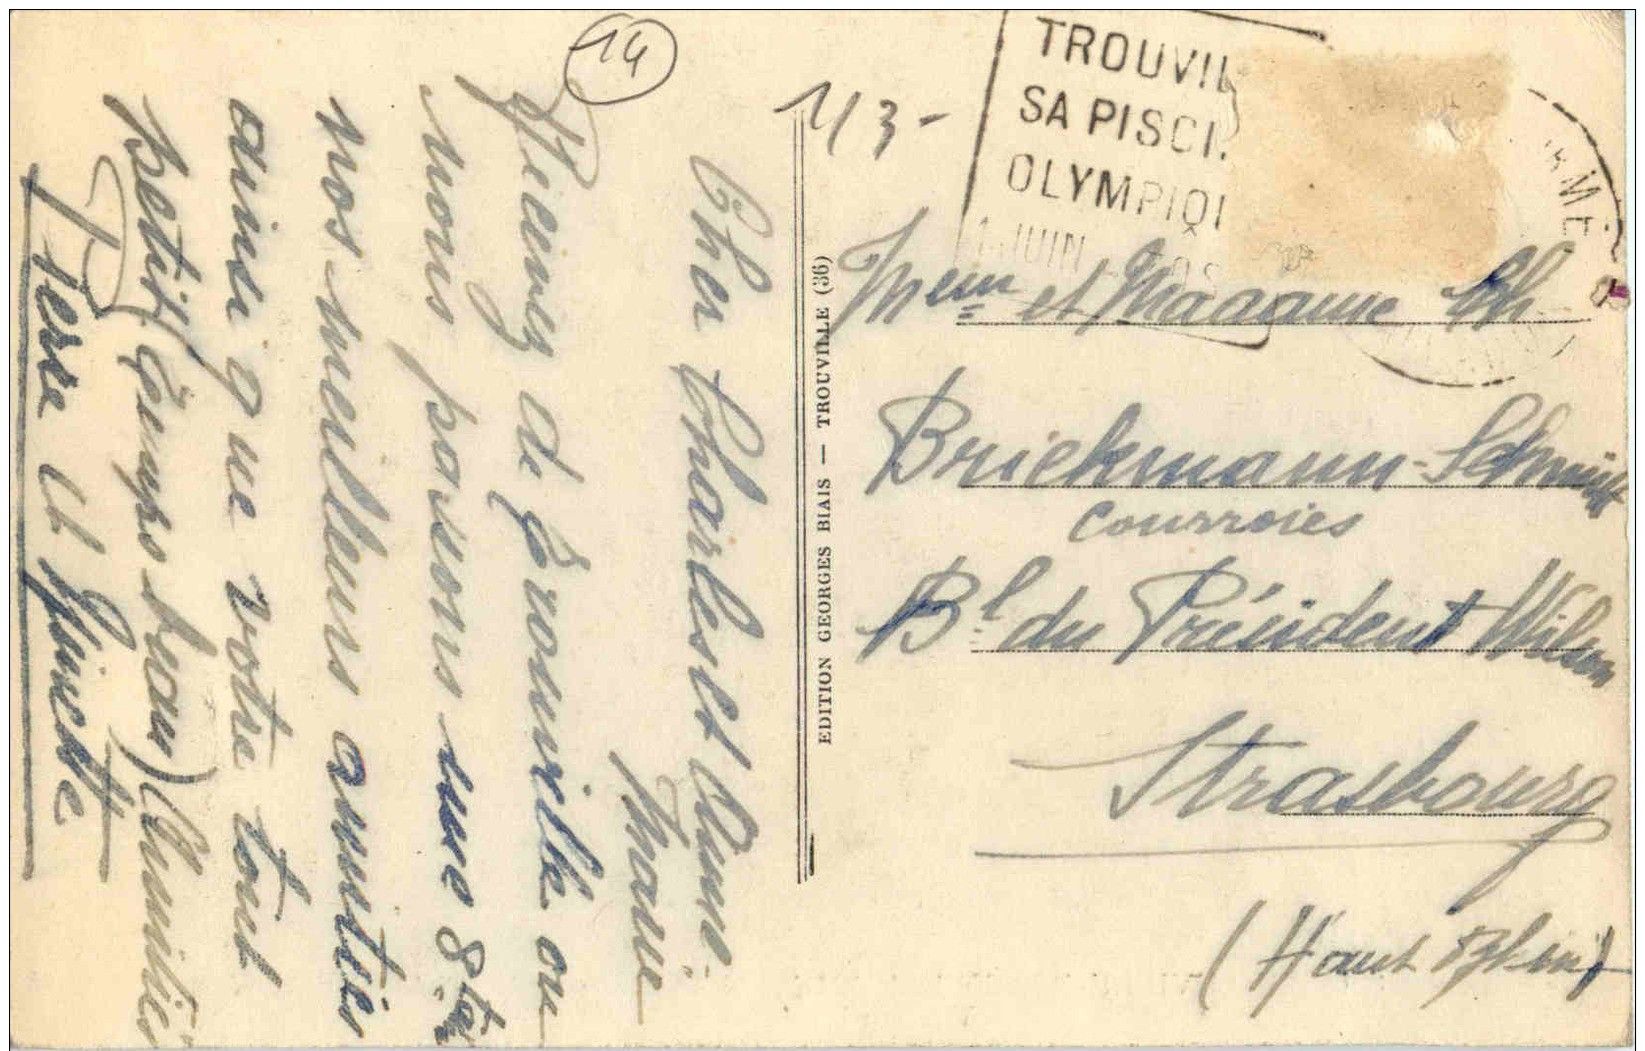 14
1/3-
TROUVIL
SA PISCI
OLYMPIQ
JUIN
Cher Charles et Anne-
Marie
de Trouville ou
nous passons une 8taine
nos meilleurs amitiés
ainsi que votre tout
petit (temps beau) Amitiés
Pierre et Ginette
EDITION GEORGES BIAIS — TROUVILLE (36)
Mr et Madame Ch
Brickmann-Schmitt
Courroies
Bl du Président Wilson
Strasbourg
(Haut Rhin)